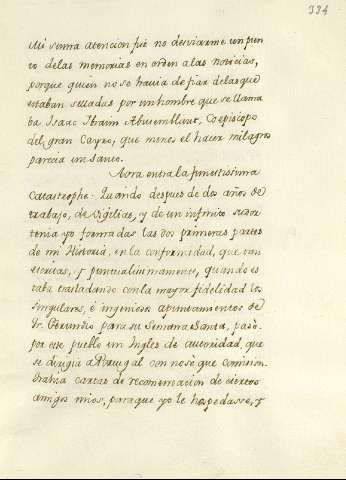 334
Mi suma atencion fue no desviarme un pun
to de las memorias en orden a las noticias,
porque quien no se havia de fiar de las que
estaban selladas por un hombre que se llama
ba Isaac Ibraim Abusemblat, Coepiscopo
del gran Cayro, que menos el hacer milagros
parecia un Santo.
Aora entra la funestissima
Catastrophe. Quando despues de dos años de
trabajo, de vigilias, y de un infinito sudor
tenia yo formadas las dos primeras partes
de mi Historia, en la conformidad, que van
escritas, y puntualissimamente, quando es
taba trasladando con la mayor fidelidad los
singulares, è ingeniosos apuntamientos de
Fr. Gerundio para su Semana Santa, pasò
por este pueblo un Ingles de autoridad, que
se dirigia a Portugal con no sè que comision.
Trahia cartas de recomendacion de ciertos
amigos mios, para que yo le hospedasse, y